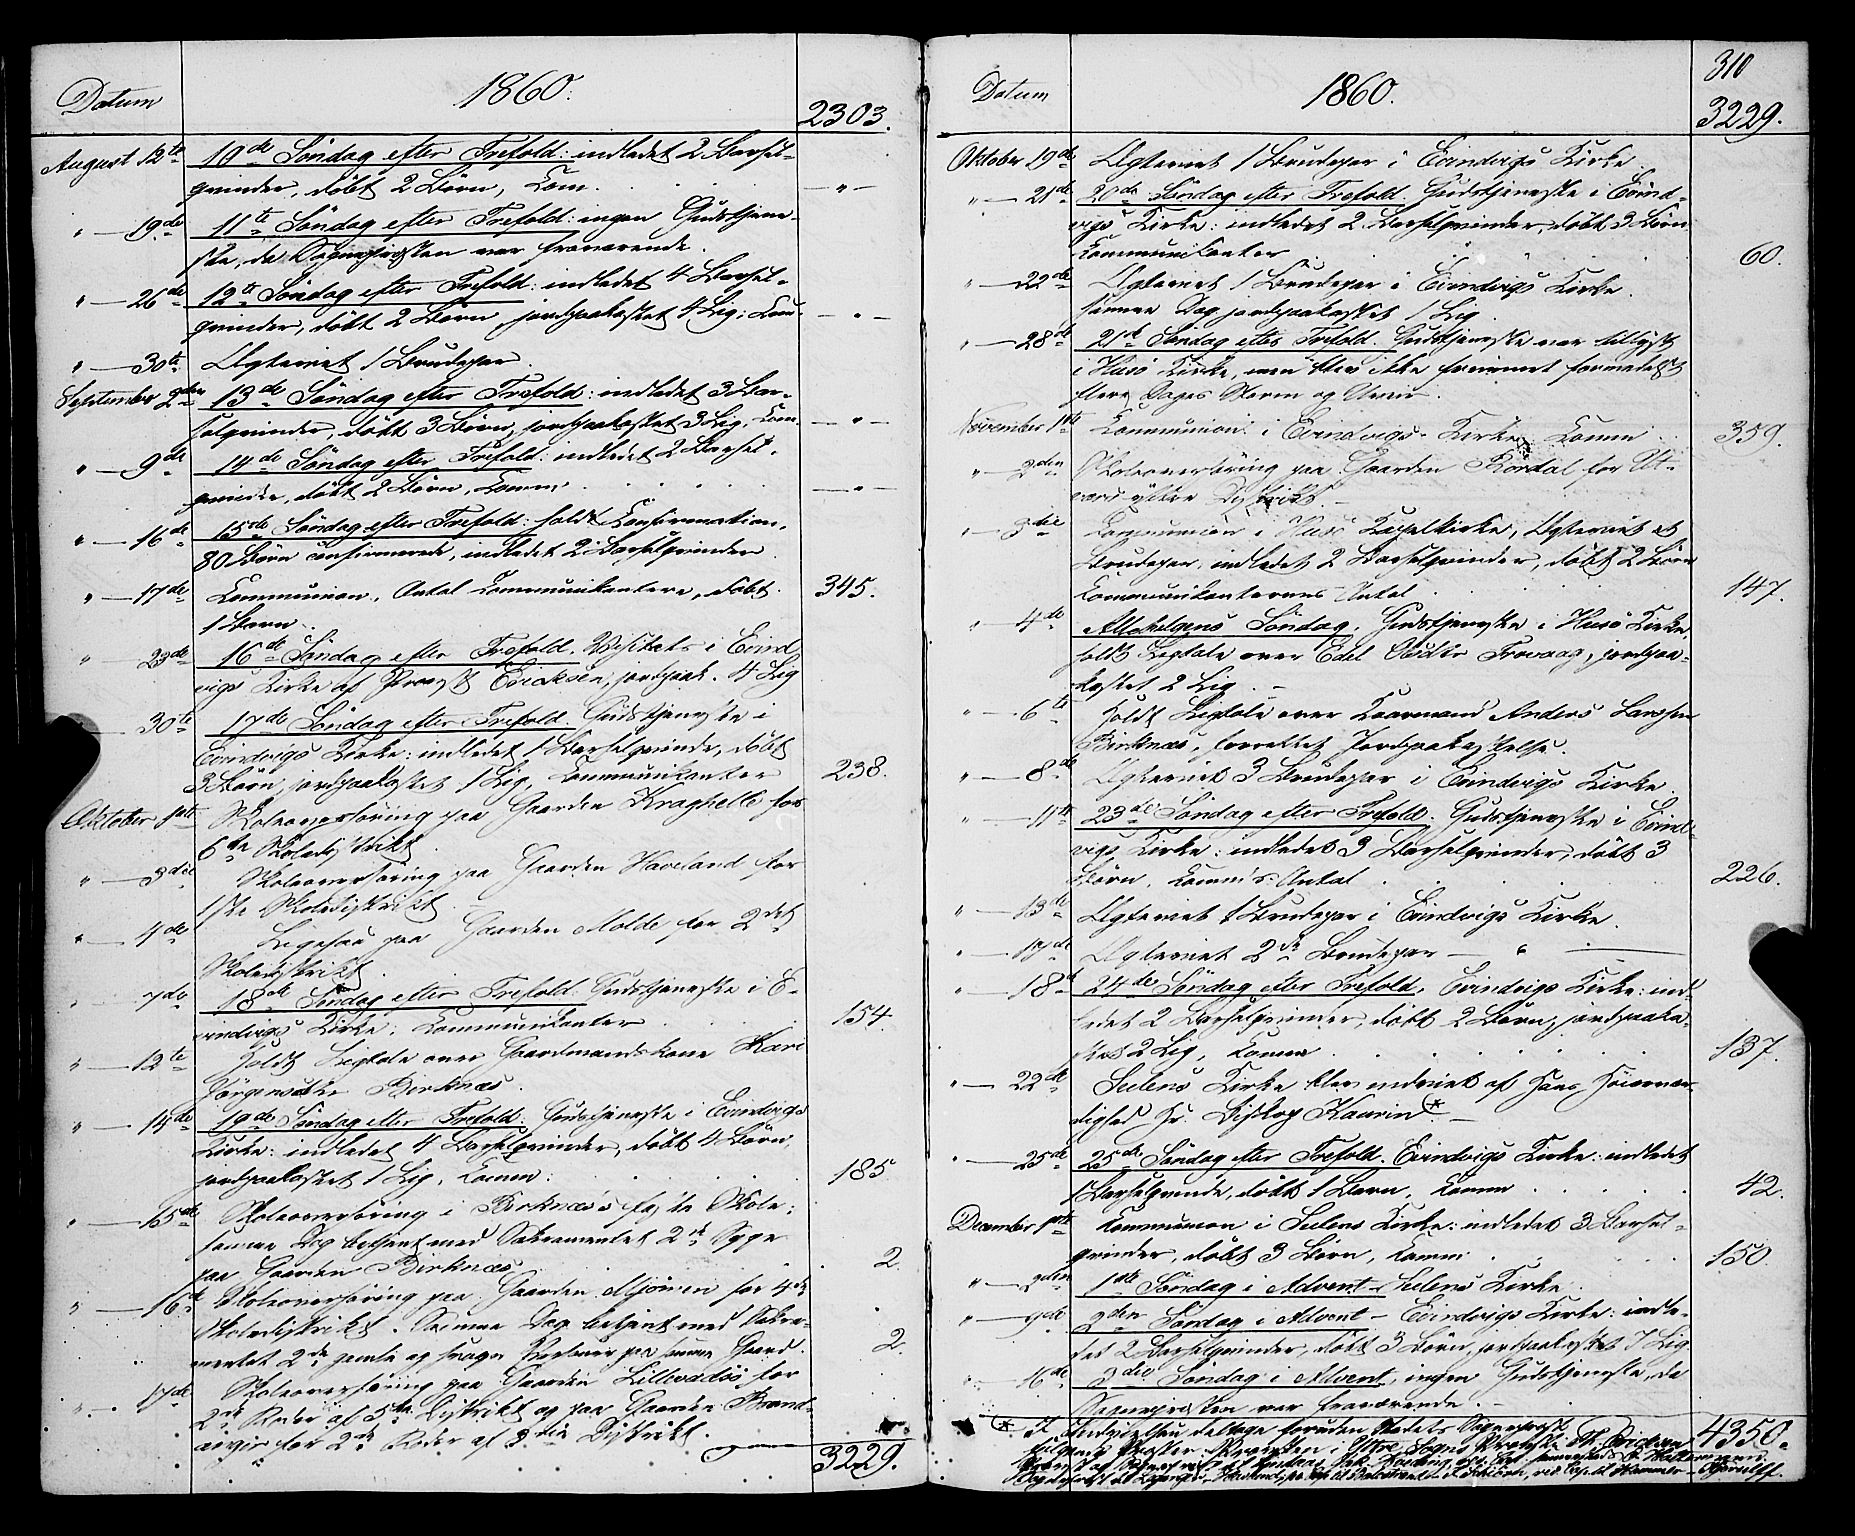 Datum
1860.
2303.
August 12te 10de Söndag efter Trefold: indledet 2 Barsel-
qvinder, döbt 2 Börn, Kom. — " —
" — 19de 11te Söndag efter Trefold: ingen Gudstjene-
ste, da Sognepresten var fraværende.
" — 26de 12te Söndag efter Trefold: indledet 4 Barsel-
qvinder, döbt 2 Börn, jordpaakastet 4 Lig; Kom. — " —
" — 30te Ægteviet 1 Brudepar.
September 2den 13de Söndag efter Trefold: indledet 3 Bar-
selqvinder, döbt 3 Börn, jordpaakastet 3 Lig; Kom. — " —
" — 9de 14de Söndag efter Trefold: indledet 2 Barsel-
qvinder, döbt 2 Börn, Komm: — " —
" — 16de 15de Söndag efter Trefold: holdt Confirmation,
80 Börn confirmerede, indledet 2 Barselqvinder.
" — 17de Communion, Antal Communikantere, döbt 345.
1 Barn.
" — 23de 16de Söndag efter Trefold. Visitats i Evind-
vigs Kirke af Provst Ericksen, jordpaak. 4 Lig
30te 17de Söndag efter Trefold. Gudstjeneste i
Evindvigs Kirke: indledet 1 Barselqvinde, döbt
3 Börn, jordpaakastet 1 Lig, Communikanter 238.
Oktober 1ste Skoleoverhöring paa Gaarden Kraghelle for
6te Skoledistrikt.
" — 3die Skoleoverhöring paa Gaarden Haveland for
1ste Skoledistrikt.
" — 4de Ligesaa paa Gaarden Molde for 2det
Skoledistrikt.
7de 18de Söndag efter Trefold. Gudstjeneste i E-
vindvigs Kirke; Kommunikanter 154.
" — 12te Holdt Ligtale over Gaardmandskone Kari
Jörgensdtr Birknæs.
" — 14de 19de Söndag efter Trefold. Gudstjeneste i Evindvigs
Kirke: indledet 4 Barselqvinder, döbt 4 Börn,
jordpaakastet 1 Lig, Komm: 185.
" — 15de Skoleoverhöring i Birknæs's faste Skole;
samme Dag betjent med Sakramentet 2de Syge
paa Gaarden Birknæs. 2.
" — 16de Skoleoverhöring paa Gaarden Mjömen for 4de
Skoledistrikt. Samme Dag betjent med Sakra-
mentet 2de gamle og svage Personer paa samme Gaard. 2.
" — 17de Skoleoverhöring paa Gaarden
2de Roder af 5te Distrikt og paa Gaarden Brand-
for 2de Roder af 3die Distrikt.
3229.
Datum
1860.
310
3229.
Oktober 19de Ægteviet 1 Brudepar i Evindvigs Kirke.
" — 21de 20de Söndag efter Trefold. Gudstjeneste i Evind-
vigs Kirke: indledet 2 Barselqvinder, döbt 3 Börn
Kommunikanter 60.
" — 22de Ægteviet 1 Brudepar i Evindvigs Kirke.
samme Dag jordpaakastet 1 Lig.
" — 28de 21de Söndag efter Trefold. Gudstjeneste var tillyst
i Husö Kirke, men blev ikke fremmet formedelst
flere Dages Storm og Uveir.
November 1ste Communion i Evindvigs Kirke, Komm 359.
" — 2den Skoleoverhöring paa Gaarden Kordal for Ut-
værs ydtre Distrikt.
" — 3die Communion i Husö Kapelkirke, Ægteviet et
Brudepar, indledet 2 Barselqvinder, döbt 2 Börn
Communikanternes Antal 147.
" — 4de Allehelgens Söndag. Gudstjeneste i Husö Kirke
holdt Ligtale over Edel Trovaag, jordpaa-
kastet 2 Lig. —
" — 6te Holdt Ligtale over Kaarmand Anders Larssen
Birknæs, forrettet Jordpaakastelse.
" — 8de Ægteviet 3 Brudepar i Evindvigs Kirke.
" — 11te 23de Söndag efter Trefold. Gudstjeneste i Evind-
vigs Kirke: indledet 3 Barselqvinder, döbt 3
Börn, Komm's Antal 226.
" — 13de Ægteviet 1 Brudepar i Evindvigs Kirke.
" — 17de Ægteviet 2de Brudepar — " —
" — 18de 24de Söndag efter Trefold, Evindvigs Kirke: ind-
ledet 2 Barselqvinder, döbt 2 Börn, jordpaaka-
stet 2 Lig, Komm 137.
" — 22de Sulens Kirke blev indviet af Hans Höiærvær-
dighed Hr. Biskop Kaurin.* —
" — 25de 25de Söndag efter Trefold. Evindvigs Kirke: indledet
1 Barselqvinde, döbt 1 Barn, Komm 42.
December 1ste Communion i Sulens Kirke: indledet 3 Barsel-
qvinder, döbt 3 Börn, Komm: 150.
" — 2den 1ste Söndag i Advent — Sulens Kirke.
" — 9de 2den Söndag i Advent — Evindvigs Kirke: indle-
det 2 Barselqvinder, döbt 3 Börn, jordpaakastet 7 Lig.
— 16de 3die Söndag i Advent, ingen Gudstjeneste, da
Sognepresten var fraværende. —
* I Indvielsen deltoge foruden Stedets Sogneprest 4350.
fölgende Prester: Provsten i Ytre Sogns Provsti Th. Ericksen